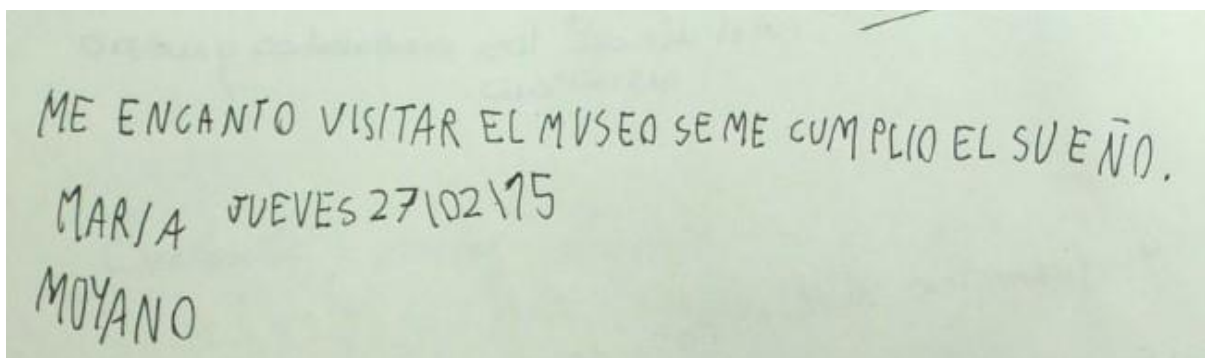 ME ENCANTO VISITAR EL MUSEO SE ME CUMPLIO EL SUEÑO.
MARIA JUEVES 27\02\15
MOYANO